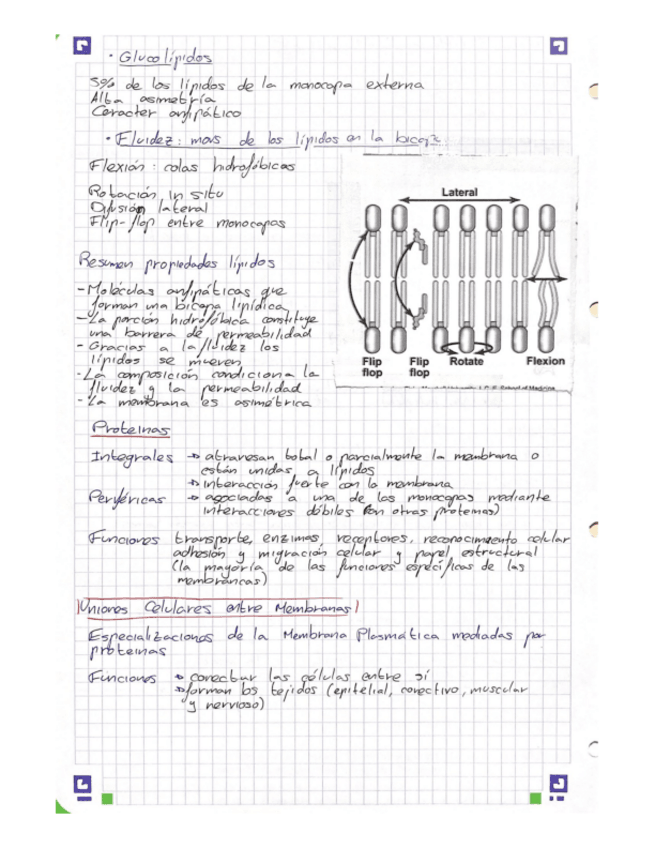 · Glucolípidos
5% de los lípidos de la monocapa externa
Alta asimetría
Caracter anfipático
· Fluidez: movs de los lípidos en la bicapa
Flexión: colas hidrofóbicas
Rotación in situ
Difusión lateral
Flip-flop entre monocapas
Lateral
Flip flop
Flip flop
Rotate
Flexion
Resumen propiedades lípidos
- Moléculas anfipáticas que
forman una bicapa lipídica
- La porción hidrofóbica constituye
una barrera de permeabilidad
- Gracias a la fluidez los
lípidos se mueven
- La composición condiciona la
fluidez y la permeabilidad
- La membrana es asimétrica
Proteinas
Integrales → atraviesan total o parcialmente la membrana o
están unidas a lípidos
→ interacción fuerte con la membrana
Periféricas → asociadas a una de las monocapas mediante
interacciones débiles (con otras proteinas)
Funciones transporte, enzimas, receptores, reconocimiento celular
adhesión y migración celular y papel estructural
(la mayoría de las funciones específicas de las
membranas)
Uniones Celulares entre Membranas
Especializaciones de la Membrana Plasmática mediadas por
proteinas
Funciones → conectar las células entre sí
→ forman los tejidos (epitelial, conectivo, muscular
y nervioso)